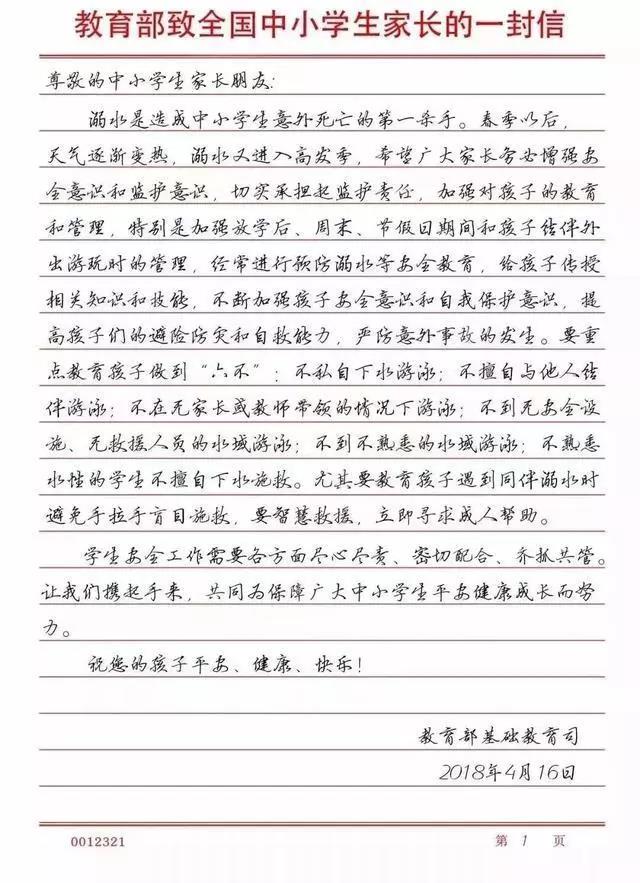 教育部致全国中小学生家长的一封信
尊敬的中小学生家长朋友:
溺水是造成中小学生意外死亡的第一杀手。春季以后，
天气逐渐变热，溺水又进入高发季，希望广大家长务必增强安
全意识和监护意识，切实承担起监护责任，加强对孩子的教育
和管理，特别是加强放学后、周末、节假日期间和孩子结伴外
出游玩时的管理，经常进行预防溺水等安全教育，给孩子传授
相关知识和技能，不断加强孩子安全意识和自我保护意识，提
高孩子们的避险防灾和自救能力，严防意外事故的发生。要重
点教育孩子做到“六不”：不私自下水游泳；不擅自与他人结
伴游泳；不在无家长或教师带领的情况下游泳；不到无安全设
施、无救援人员的水域游泳；不到不熟悉的水域游泳；不熟悉
水性的学生不擅自下水施救。尤其要教育孩子遇到同伴溺水时
避免手拉手盲目施救，要智慧救援，立即寻求成人帮助。
学生安全工作需要各方面尽心尽责、密切配合、齐抓共管。
让我们携起手来，共同为保障广大中小学生平安健康成长而努
力。
祝您的孩子平安、健康、快乐！
教育部基础教育司
2018年4月16日
0012321 第 1 页